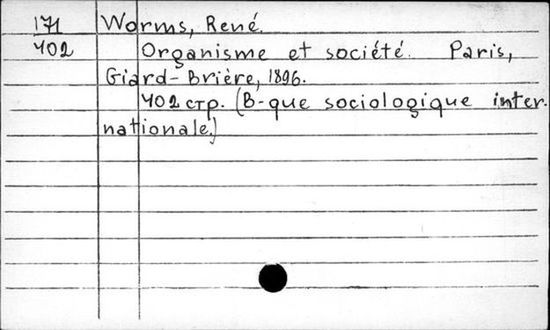 171 Worms, René.
402 Organisme et société. Paris,
Giard-Brière, 1896.
402 стр. (B-que sociologique inter-
nationale.)